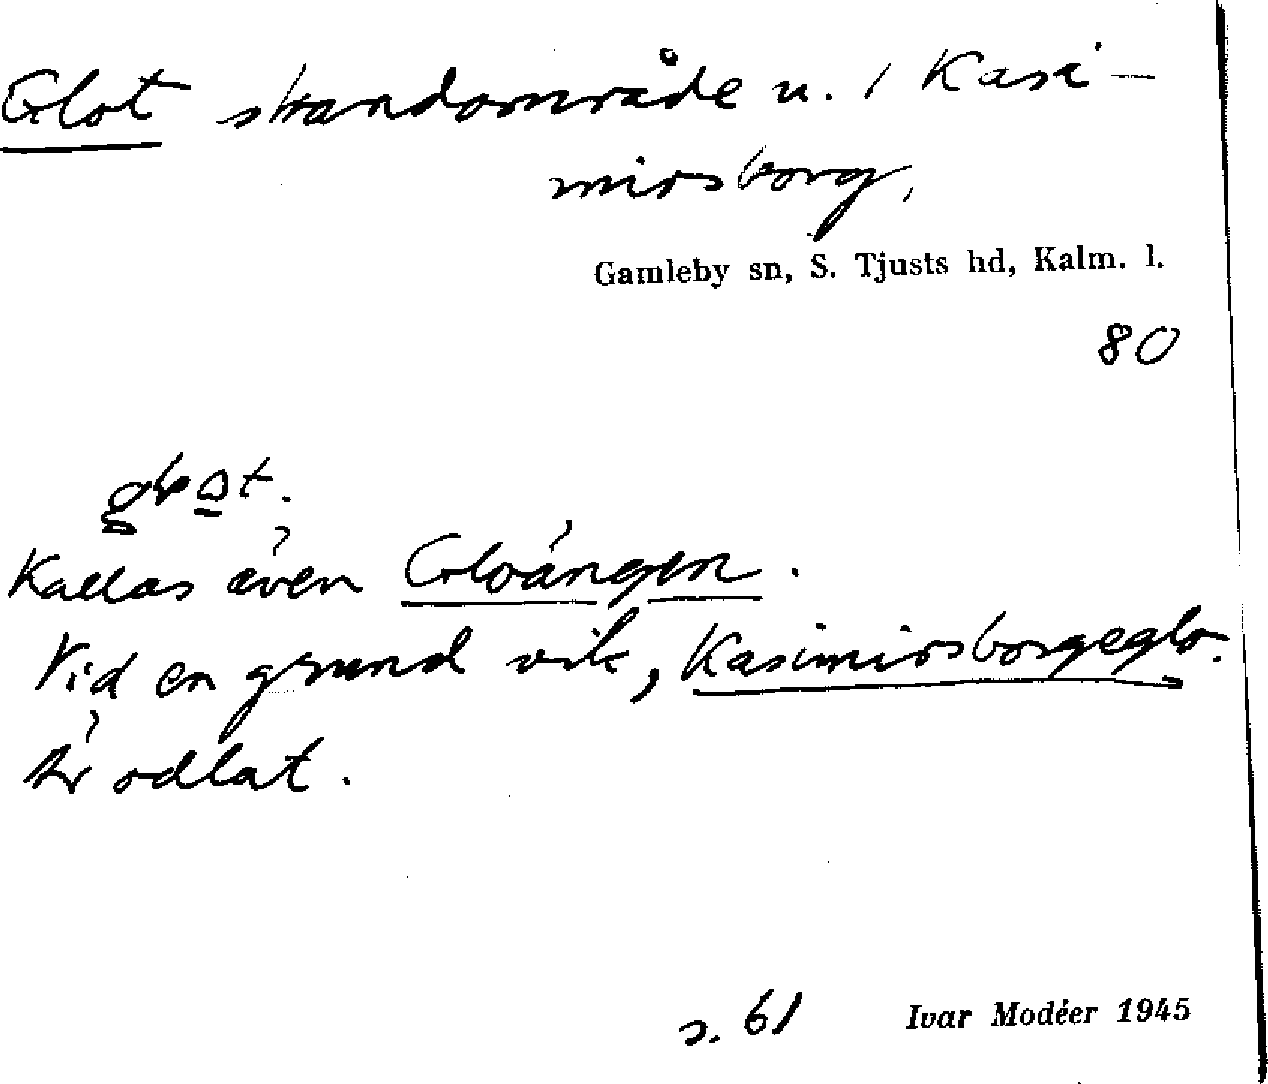 Glot strandområde u. 1 Kasi-
mirsborg,
Gamleby sn, S. Tjusts hd, Kalm. l.
80
Kallas även Gloängen.
Vid en grund vik, Kasimirsborgeglo.
Är odlat.
s. 61 Ivar Modéer 1945